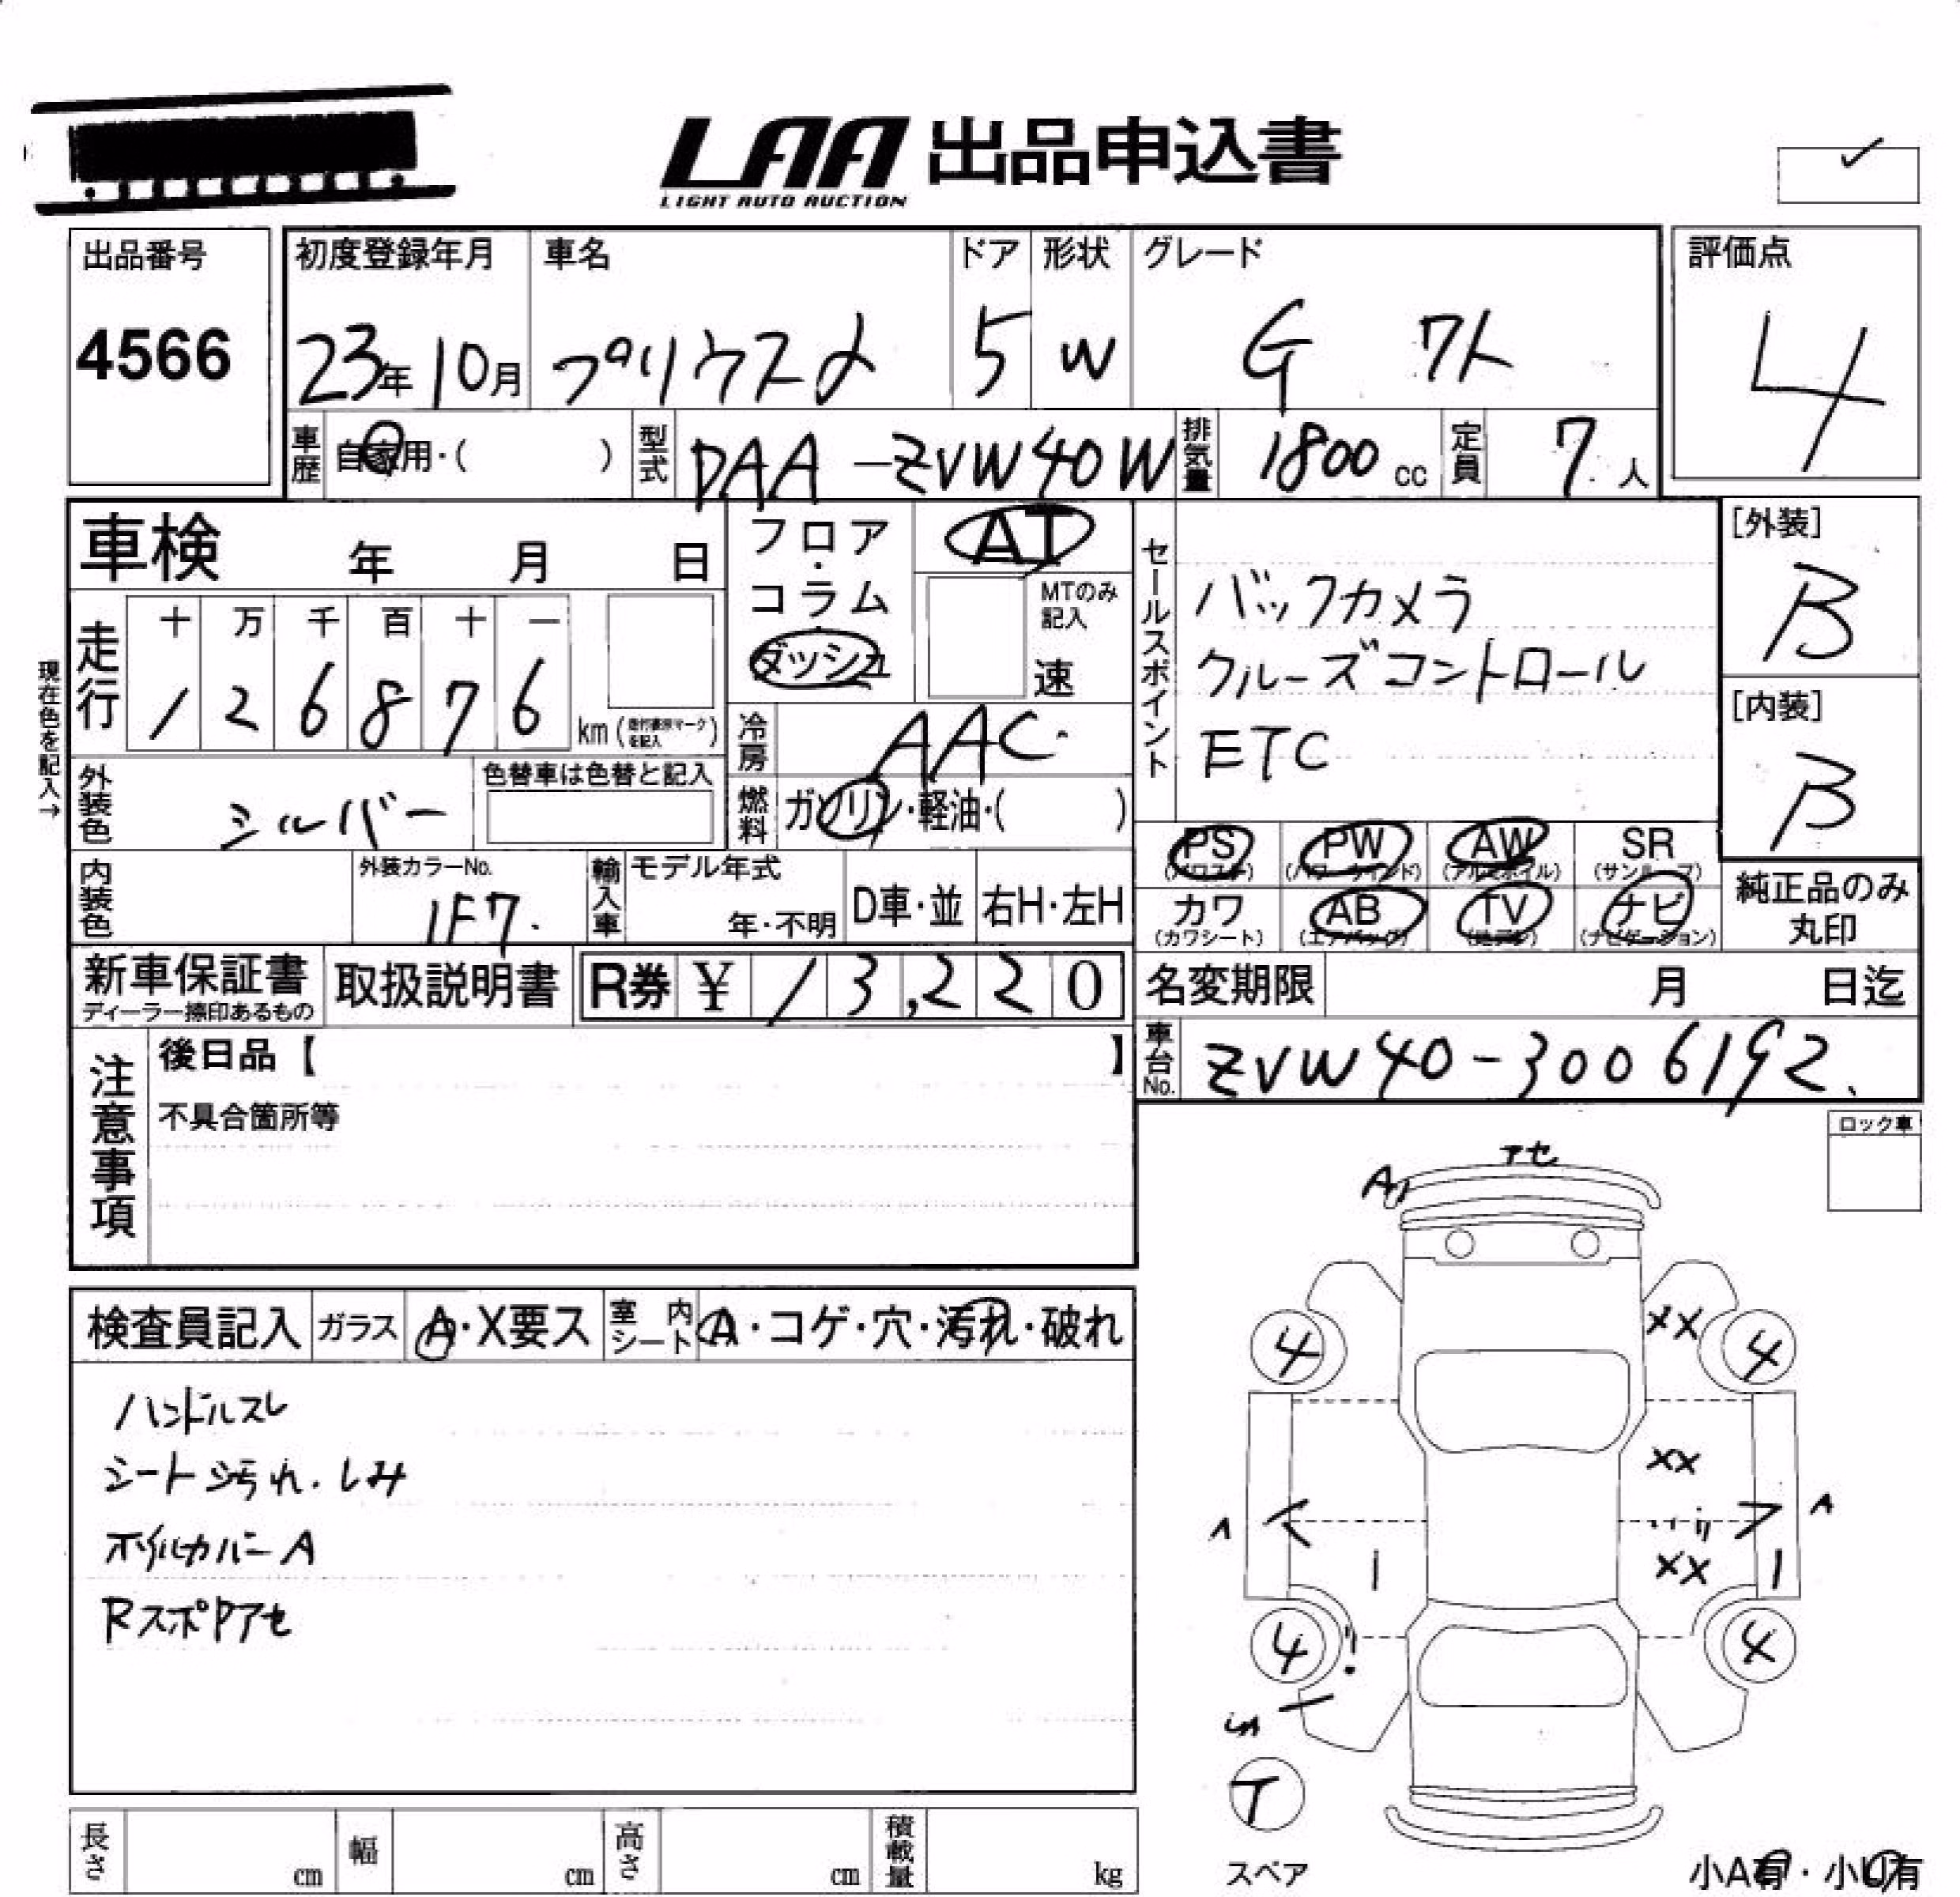 LAA 出品申込書
LIGHT AUTO AUCTION
出品番号
4566
初度登録年月
23年10月
車名
プリウスα
ドア
5
形状
W
グレード
G 7人
評価点
4
車歴
自家用・( )
型式
DAA-ZVW40W
排気量
1800cc
定員
7人
車検 年 月 日
フロア・コラム・ダッシュ
AT
MTのみ記入
速
走行
十 万 千 百 十 一
1 2 6 8 7 6 km
現在色を記入→
冷房
AAC
燃料
ガソリン・軽油・( )
外装色
シルバー
色替車は色替と記入
内装色
外装カラーNo.
1F7.
輸入車
モデル年式
年・不明
D車・並
右H・左H
セールスポイント
バックカメラ
クルーズコントロール
ETC
[外装]
B
[内装]
B
PS PW AW SR
(パワステ) (パワーウインド) (アルミホイル) (サンルーフ)
カワ AB TV ナビ
(カワシート) (エアバッグ) (地デジ) (ナビゲーション)
純正品のみ
丸印
新車保証書
ディーラー捺印あるもの
取扱説明書
R券 ¥13,220
名変期限 月 日迄
車台No.
ZVW40-3006192.
注意事項
後日品【 】
不具合箇所等
ロック車
検査員記入
ガラス
A・X要ス
室内シート
A・コゲ・穴・汚れ・破れ
ハンドルスレ
シート汚れ.しみ
ホイルカバーA
RスポPアセ
アセ
A1
XX
4 4
XX
A A
XX
4 4
T
スペア
小A有・小U有
長さ cm
幅 cm
高さ cm
積載量 kg